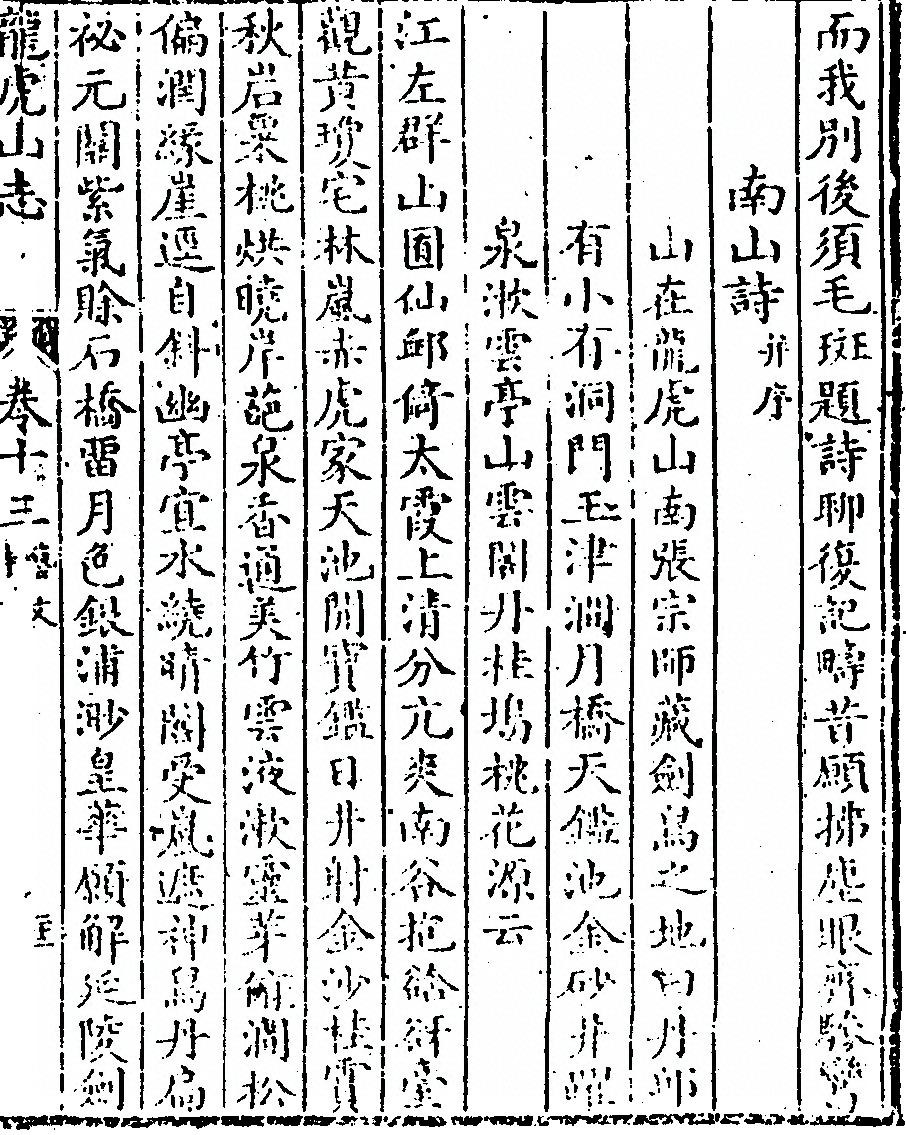 而我別後須毛斑題詩聊復記疇昔願拂塵眼齊驂鸞
南山詩并序
山在龍虎山南張宗師藏劍舄之地曰丹邱
有小有洞門玉津澗月橋天鑑池金砂井躍
泉漱雲亭山雲閣丹桂塢桃花源云
江左群山囿仙邱倚太霞上清分亢爽南谷抱谽谺臺
觀黃瓊宅林嵐赤虎家天池開寶鑑日井射金沙桂實
秋岩翠桃烘曉岸葩泉香通美竹雲液漱靈芽俯澗松
偏潤緣崖逕自斜幽亭宜水繞晴閣受嵐遮神舄丹扃
祕元關紫氣賒石橋留月色銀浦渺皇華願解延陵劍
龍虎山志 卷十三 藝文